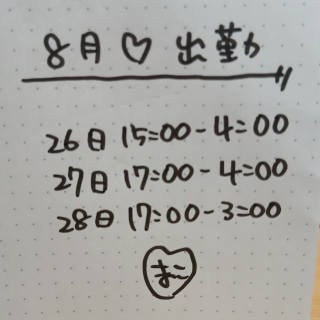 8月♡出勤
26日 15:00-4:00
27日 17:00-4:00
28日 17:00-3:00
まこ